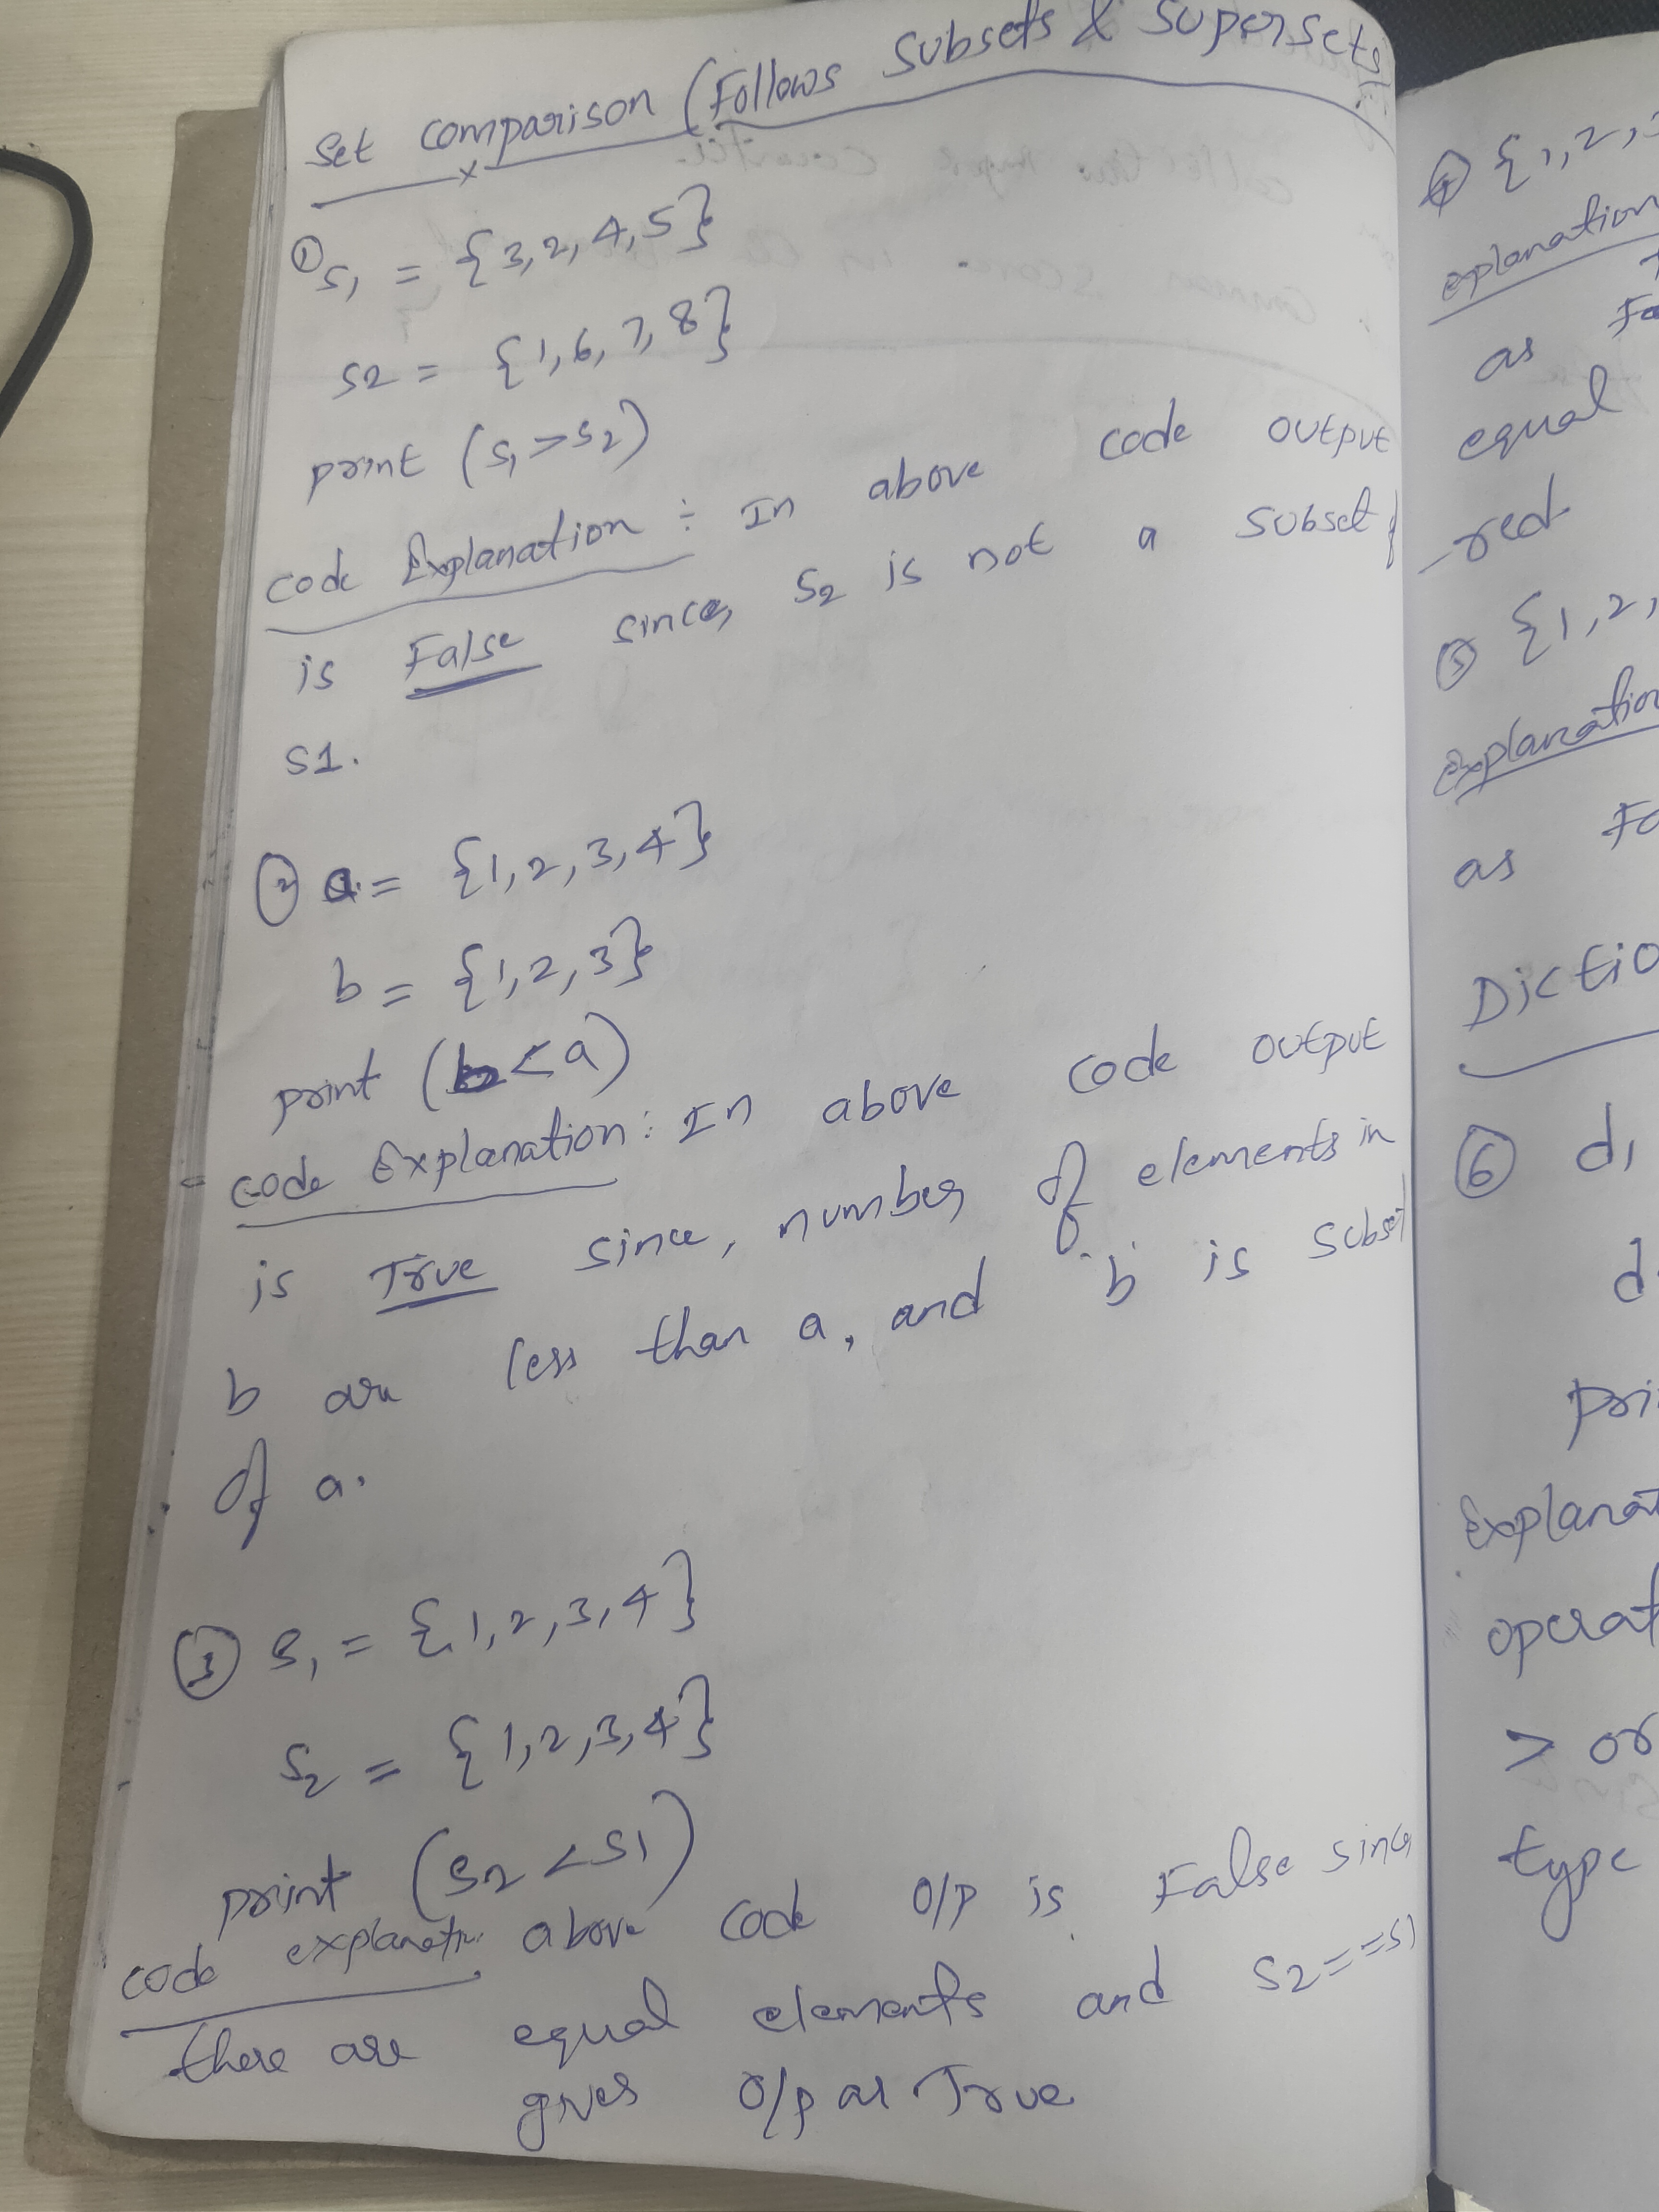 Set comparison (Follows Subsets & Supersets)
① S1 = {3,2,4,5}
S2 = {1,6,7,8}
print (S1>S2)
Code Explanation : In above code output
is False since, S2 is not a subset of
S1.
② a = {1,2,3,4}
b = {1,2,3}
print (b<a)
Code Explanation : In above code output
is True since, number of elements in
b are less than a, and 'b' is subset
of a.
③ S1 = {1,2,3,4}
S2 = {1,2,3,4}
print (S2<S1)
code explanation above code o/p is False since
there are equal elements and S2==S1
gives o/p as True
④ {1,2,
explanation
as
equal
-red
⑤ {1,2,
Explanation
as
Dictio
⑥ d1
d
pri
Explanat
operat
> or
type